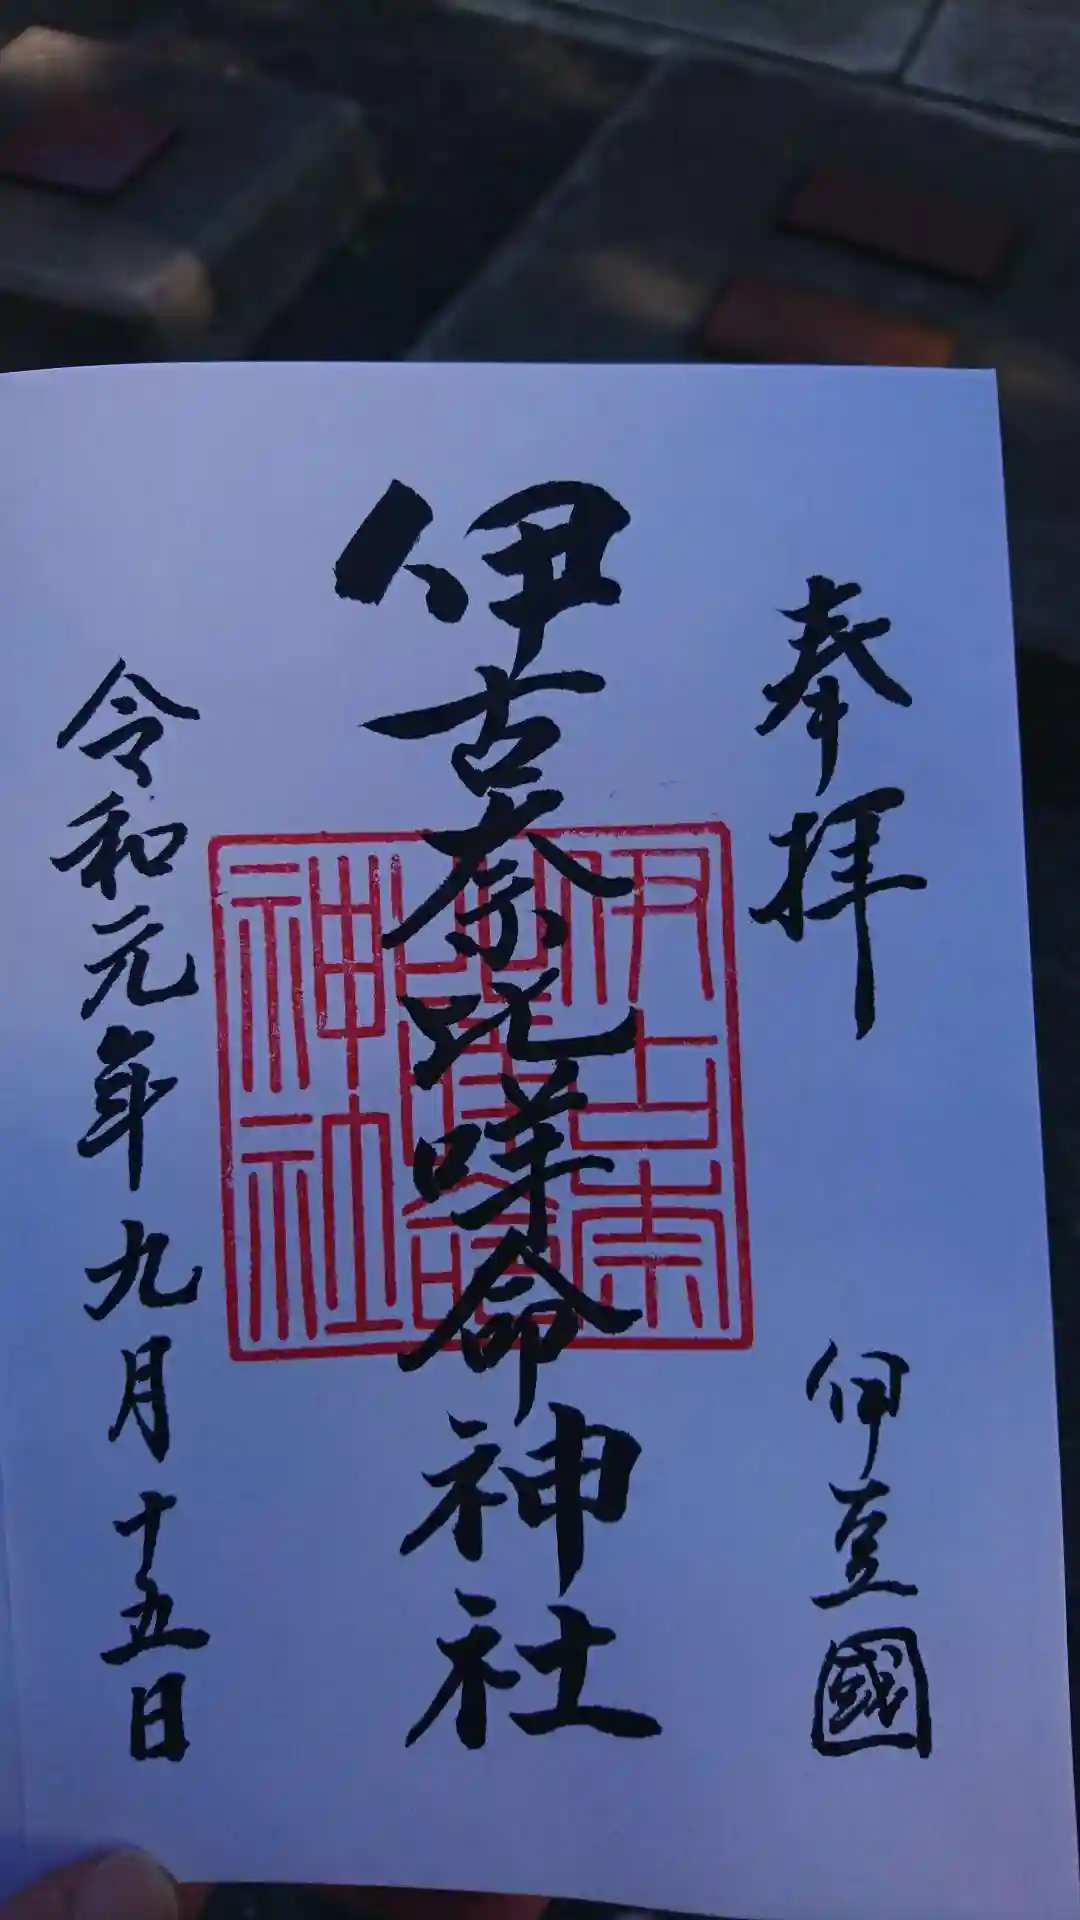 奉拝
伊豆國
伊古奈比咩命神社
伊古奈
比咩命
神社
令和元年九月十五日